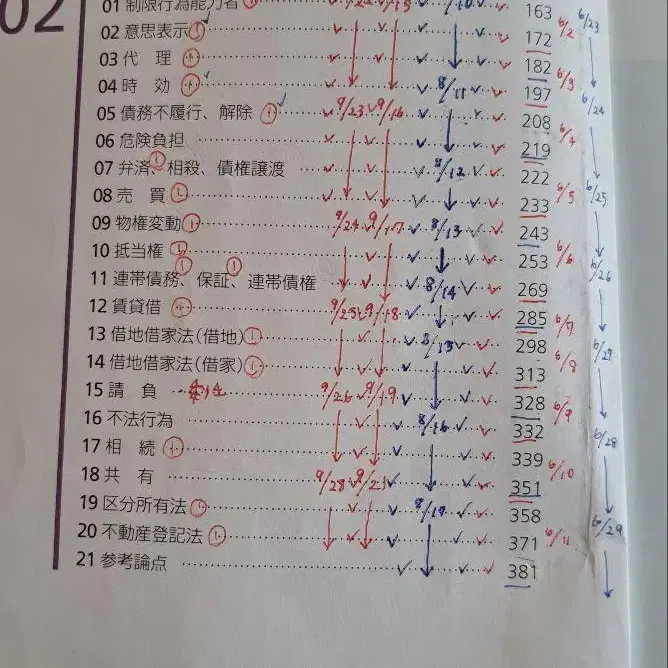 02
01 制限行為能力者 163 6/2 6/23
02 意思表示 172
03 代 理 182 6/3
04 時 効 8/11 197 6/24
05 債務不履行、解除 9/23 9/16 208 6/4
06 危険負担 219
07 弁済、相殺、債権譲渡 8/12 222 6/5 6/25
08 売 買 233
09 物権変動 9/24 9/17 8/13 243 6/6
10 抵当権 253 6/26
11 連帯債務、保証、連帯債権 8/14 269
12 賃貸借 9/25 9/18 285 6/7
13 借地借家法(借地) 8/15 298 6/8
14 借地借家法(借家) 313
15 請 負 9/26 9/19 328 6/9
16 不法行為 8/16 332 6/28
17 相 続 339 6/10
18 共 有 9/28 9/21 351
19 区分所有法 358 6/29
20 不動産登記法 371 6/11
21 参考論点 381